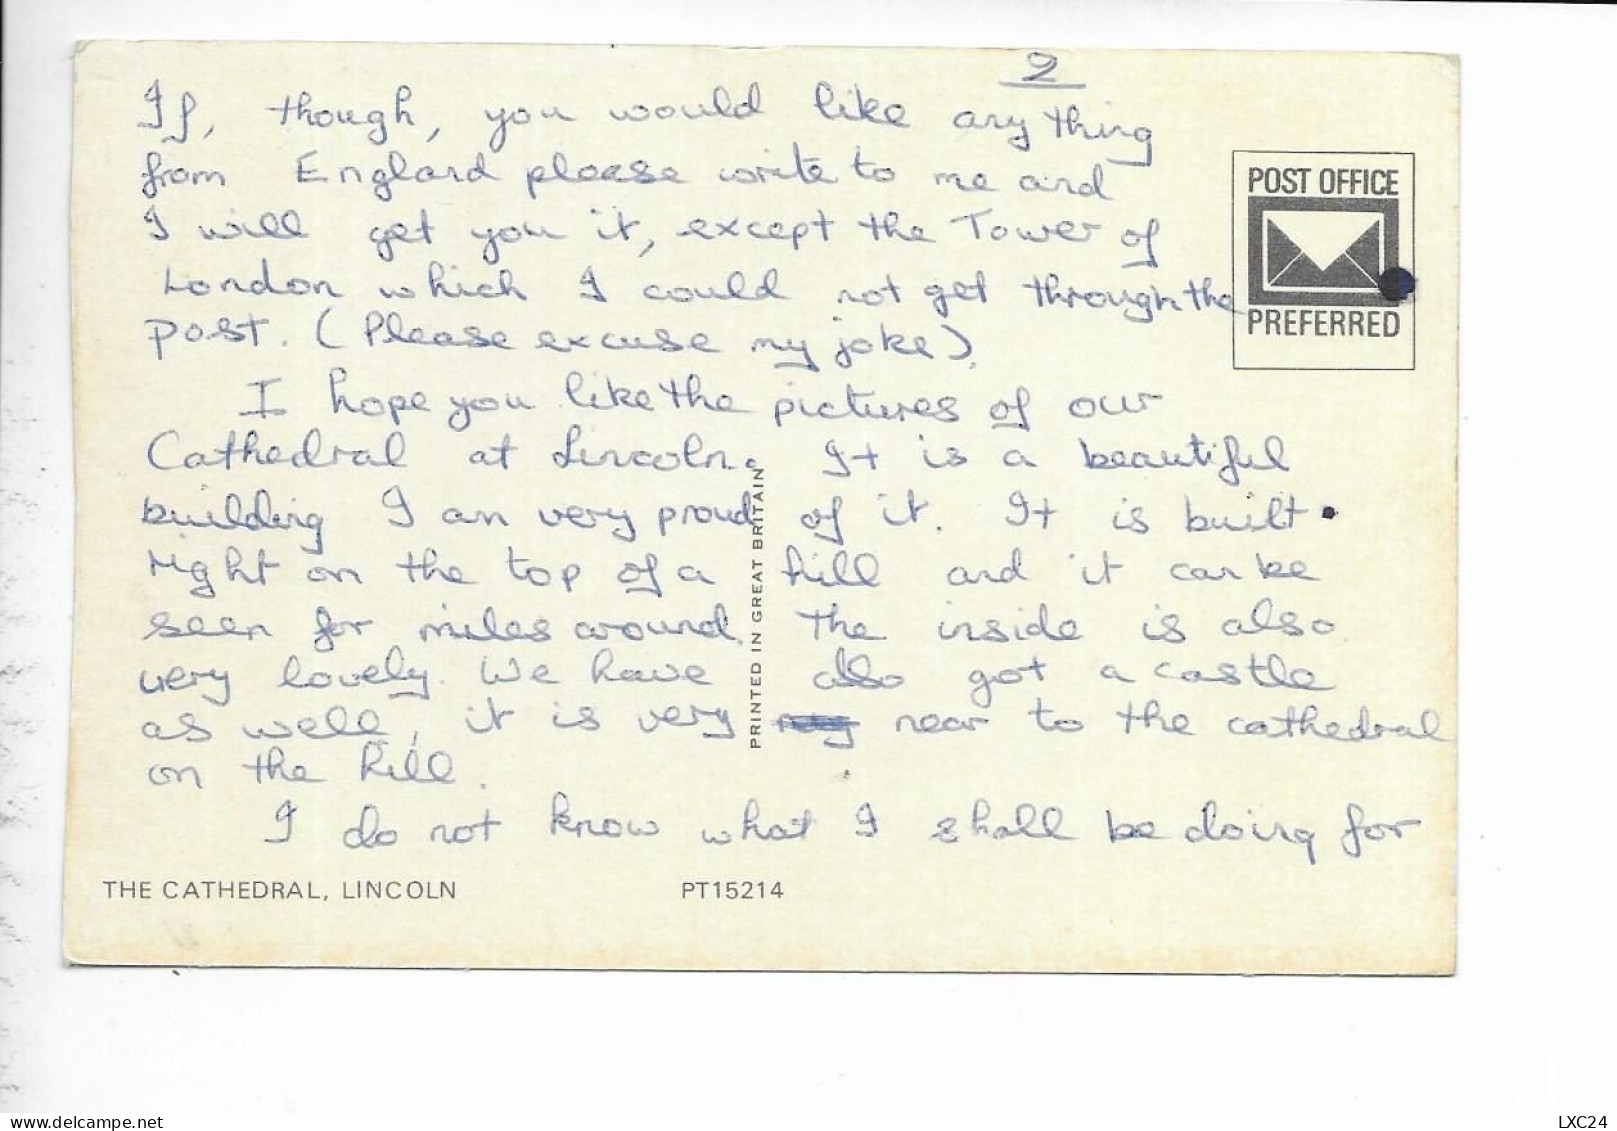 2
If, though, you would like any thing
from England please write to me and
I will get you it, except the Tower of
London which I could not get through the
post. (Please excuse my joke).
I hope you like the pictures of our
Cathedral at Lincoln. It is a beautiful
building I am very proud of it. It is built
right on the top of a hill and it can be
seen for miles around. The inside is also
very lovely. We have also got a castle
as well, it is very near to the cathedral
on the hill.
I do not know what I shall be doing for
POST OFFICE
PREFERRED
PRINTED IN GREAT BRITAIN
THE CATHEDRAL, LINCOLN
PT15214
www.delcampe.net
LXC24